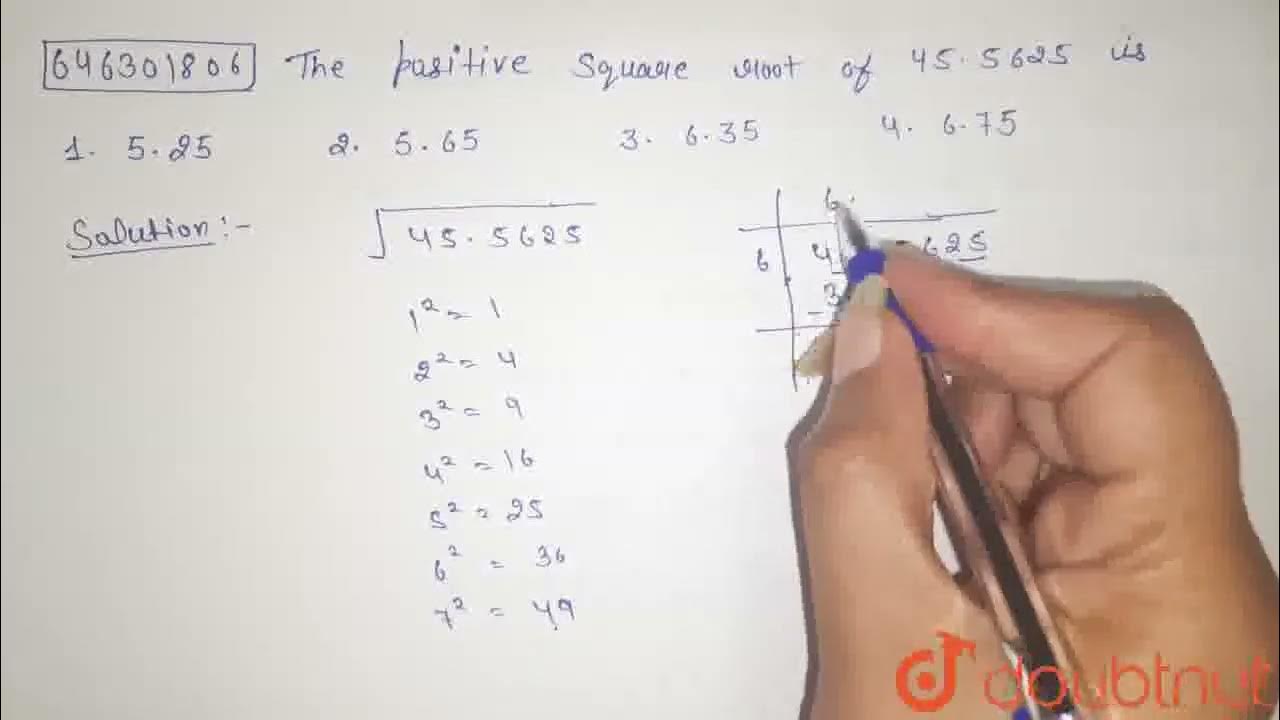 646301806 The positive square root of 45.5625 is
1. 5.25 2. 5.65 3. 6.35 4. 6.75
Solution :-
√45.5625
6.
6 4 625
- 3
1² = 1
2² = 4
3² = 9
4² = 16
5² = 25
6² = 36
7² = 49
doubtnut